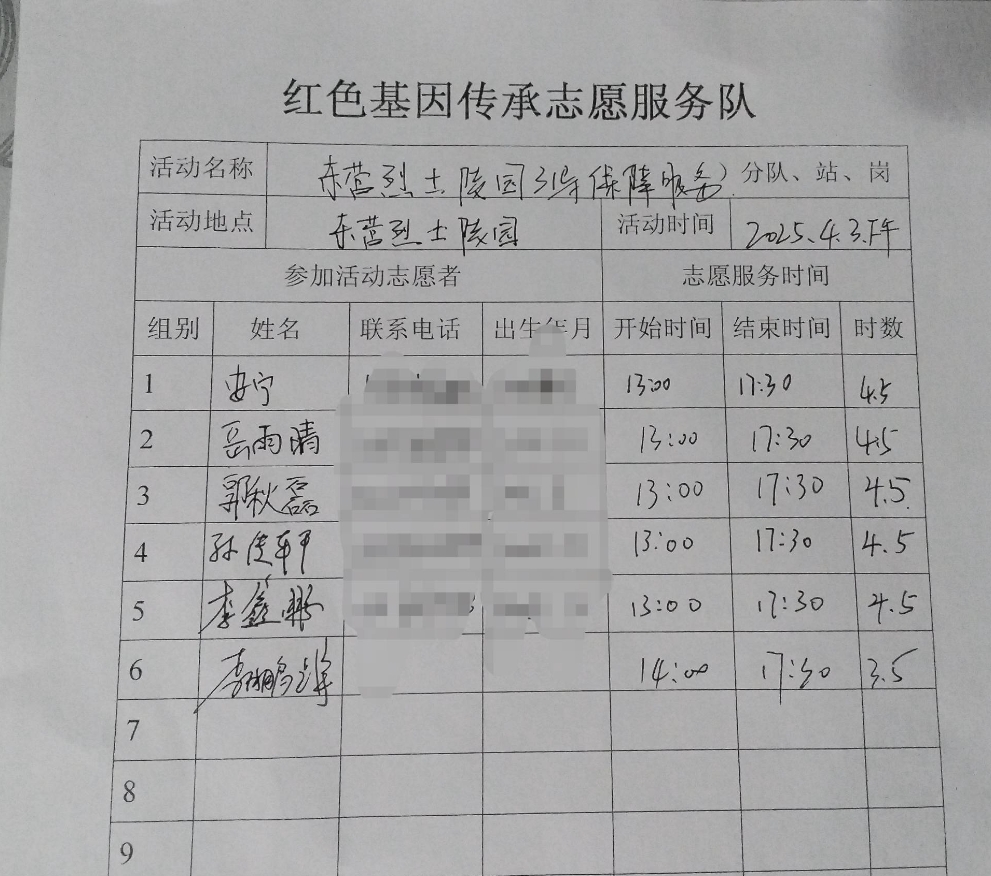 红色基因传承志愿服务队
活动名称 东营烈士陵园引导保障服务）分队、站、岗
活动地点 东营烈士陵园 活动时间 2025.4.3.下午
参加活动志愿者 志愿服务时间
组别 姓名 联系电话 出生年月 开始时间 结束时间 时数
1 安宁 13:00 17:30 4.5
2 岳雨晴 13:00 17:30 4.5
3 郭秋磊 13:00 17:30 4.5
4 孙佳轩 13:00 17:30 4.5
5 李鑫鹏 13:00 17:30 4.5
6 李鹏 14:00 17:30 3.5
7
8
9